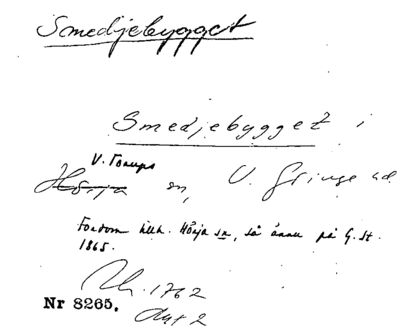 Smedjebygget
Smedjebygget i
V. Torups
Hörja sn, V. Göinge hd
Fordom hith. Hörja sn, så ännu på G. St.
1865.
1762
Nr 8265.